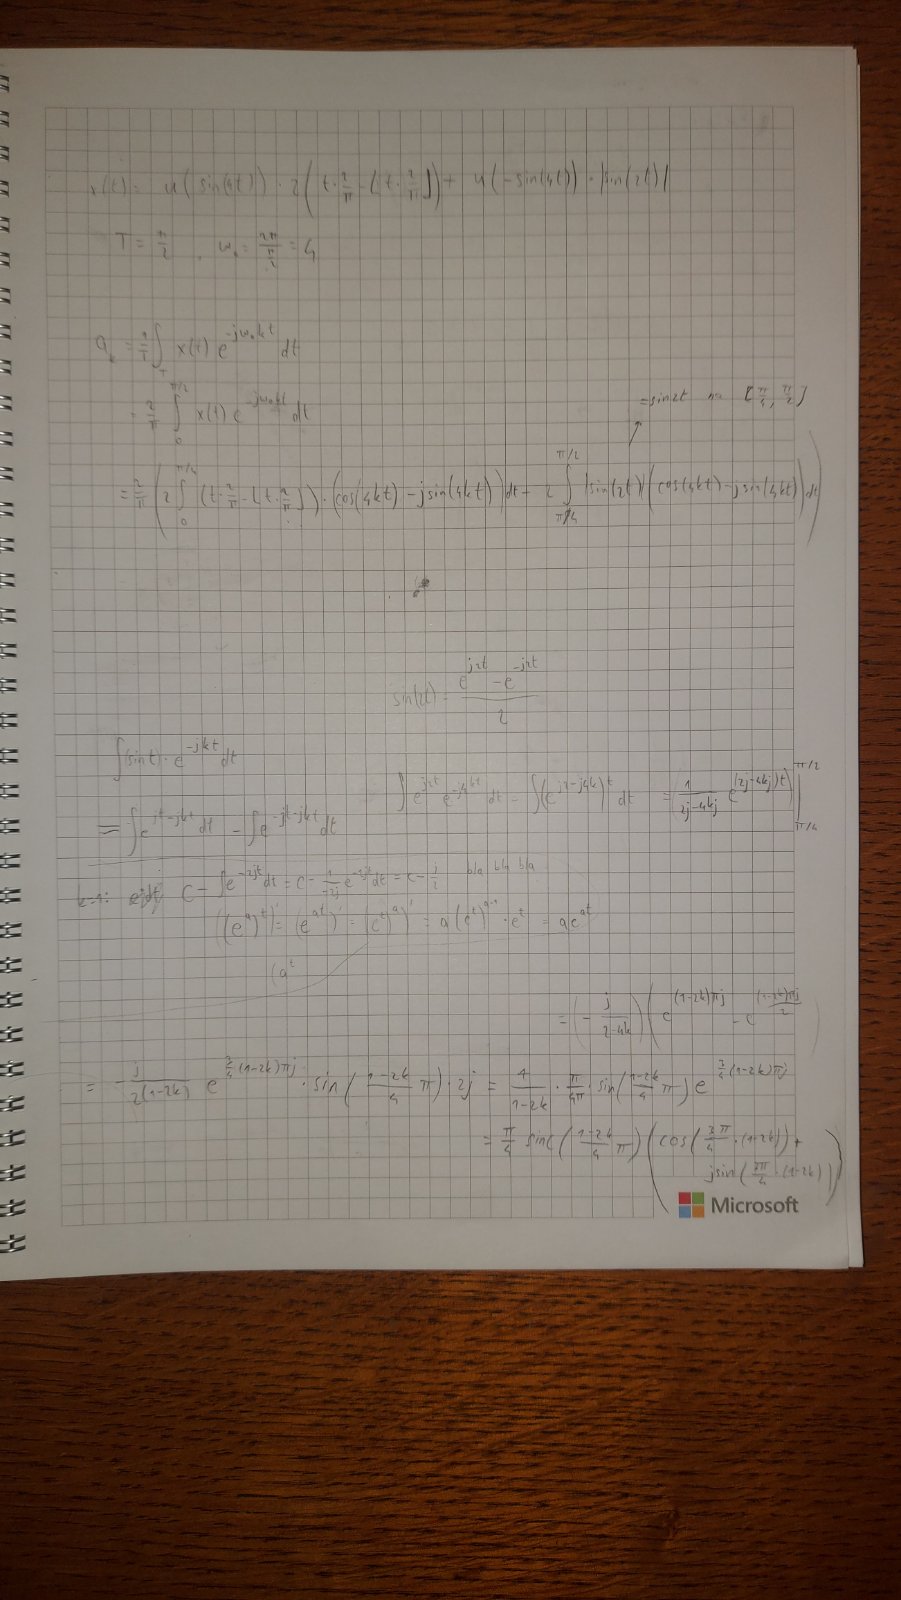 x(t) = u(sin(4t)) · 2(t·2/π - ⌊t·2/π⌋) + u(-sin(4t)) · |sin(2t)|
T = π/2, ω₀ = 2π/(π/2) = 4
aₖ = 1/T ∫_T x(t) e^(-jω₀kt) dt
= 2/π ∫_0^(π/2) x(t) e^(-jω₀kt) dt
= sin2t na [π/4, π/2]
= 2/π (2 ∫_0^(π/4) (t·2/π - ⌊t·2/π⌋) · (cos(4kt) - jsin(4kt)) dt + 2 ∫_(π/4)^(π/2) |sin(2t)| (cos(4kt) - jsin(4kt)) dt)
sin(2t) = (e^(j2t) - e^(-j2t))/2
∫(sin t) · e^(-jkt) dt
∫ e^(j2t) e^(-j4kt) dt = ∫(e^(j2-j4k))^t dt = (1/(2j-4kj) e^((2j-4kj)t)) |_(π/4)^(π/2)
= ∫e^(jt-jkt) dt - ∫e^(-jt-jkt) dt
k=1: C - ∫e^(-2jt) dt = C - 1/(-2j) e^(-2jt) dt = C - j/2 bla bla bla
((e^a)^t)' = (e^(at))' = ((e^t)^a)' = a(e^t)^(a-1) · e^t = ae^(at)
(a^t
= (- j/(2-4k)) (e^((1-2k)πj) - e^((1-2k)πj/2))
= - j/(2(1-2k)) e^(3/4(1-2k)πj) · sin((1-2k)/4 π) · 2j = 1/(1-2k) · π/4π · sin((1-2k)/4 π) e^(3/4(1-2k)πj)
= π/4 sinc((1-2k)/4 π) (cos(3π/4 · (1-2k)) +
jsin(3π/4 · (1-2k)))
Microsoft